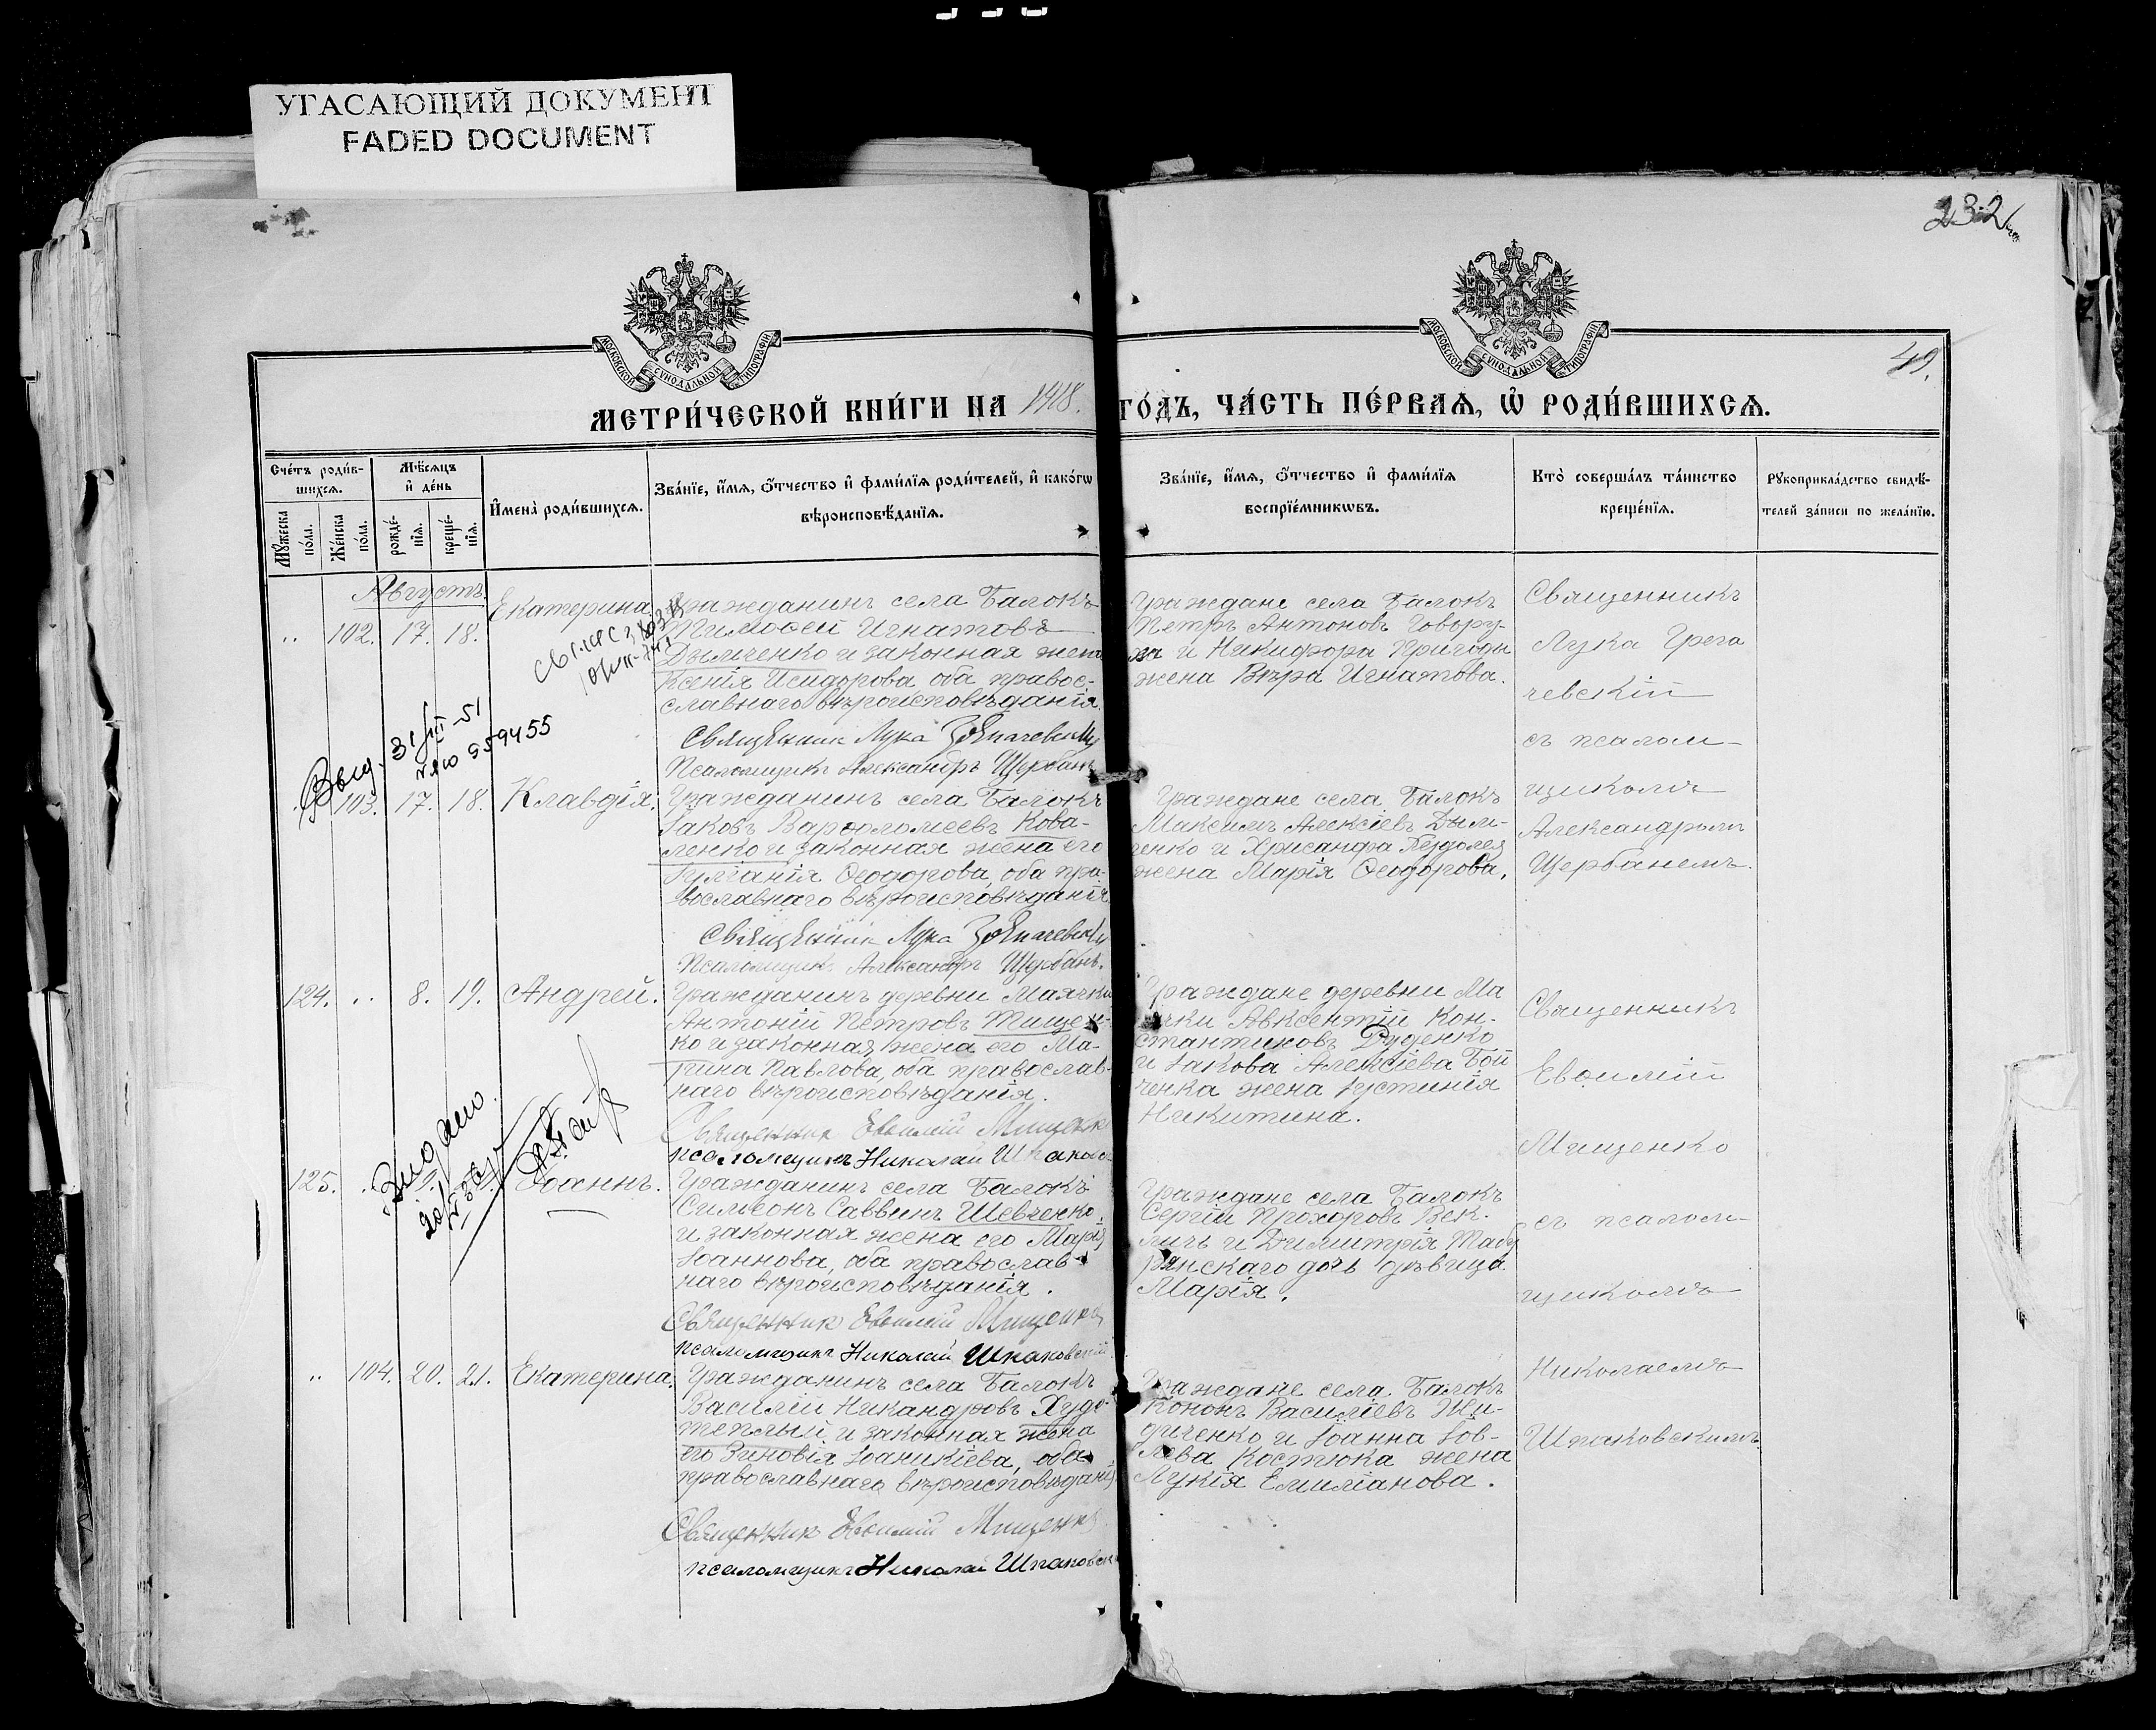 УГАСАЮЩИЙ ДОКУМЕНТ
FADED DOCUMENT
232
49.
МОСКОВСКОЙ СѴНОДАЛЬНОЙ ТИПОГРАФІИ
МОСКОВСКОЙ СѴНОДАЛЬНОЙ ТИПОГРАФІИ
МЕТРИ́ЧЕСКОЙ КНИ́ГИ НА 1918. ГО́ДЪ, ЧА́СТЬ ПЕ́РВАѦ, Ѽ РОДИ́ВШИХСѦ.
Сче́тъ роди́в-
шихсѧ.
Мꙋ́жеска по́ла.
Же́нска по́ла.
Мѣ́сѧцъ и҆ де́нь
рожде́-
нїѧ.
креще́-
нїѧ.
И҆мена̀ роди́вшихсѧ.
Зва́нїе, и҆́мѧ, ѻ҆́тчество и҆ фами́лїѧ роди́телей, и҆ како́гѡ
вѣроисповѣ́данїѧ.
Зва́нїе, и҆́мѧ, ѻ҆́тчество и҆ фами́лїѧ
воспрїе́мникѡвъ.
Кто̀ соверша́лъ та́инство
креще́нїѧ.
Рꙋкоприкла́дство свидѣ́-
телей за́писи по жела́нїю.
Августъ.
„ 102. 17. 18. Екатерина
Гражданинъ села Балокъ
Тимоѳей Игнатовъ
Дымченко и законная жена
Ксенія Исидорова оба правос-
славнаго вѣроисповѣданія.
Священник Лука
Псаломщикъ Александръ Щербань
Граждане села Балокъ
Петръ Антоновъ Говору-
ха и Никифора Пригоды
жена Вѣра Игнатова.
Священникъ
Лука Греса
чевскій
съ псалом-
щикомъ
Александромъ
Щербанемъ.
Выд. 31/III-51
959455
103. 17. 18. Клавдія.
Гражданинъ села Балокъ
Іаковъ Варѳоломеевъ Кова-
ленко и законная жена его
Іуліанія Ѳеодорова, оба пра-
вославнаго вѣроисповѣданія.
Священник Лука
Псаломщикъ Александръ Щербань.
Граждане села Балокъ
Максимъ Алексіевъ Дым-
ченко и Хрисанфа
жена Марія Ѳеодорова.
124. „ 8. 19. Андрей.
Гражданинъ деревни Маячки
Антоній Петровъ Тищен-
ко и законная жена его Ма-
трина Павлова, оба православ-
наго вѣроисповѣданія.
Священник Евѳимій Мищенко
псаломщикъ Николай Шпаковс
Граждане деревни Ма
ячки Авксентій Кон-
стантиновъ Руденко
и Іакова Алексіева Бой
ченка жена Іустинія
Никитина.
Священникъ
Евѳимій
Мищенко
съ псалом-
щикомъ
Николаемъ
Шпаковскимъ
Видано
125. Іоаннъ.
Гражданинъ села Балокъ
Симеонъ Саввинъ Шевченко
и законная жена его Марія
Іоаннова, оба православ-
наго вѣроисповѣданія.
Священник Евѳимій Мищенко
псаломщикъ Николай Шпаковскій
Граждане села Балокъ
Сергій Прохоровъ Век-
личъ и Димитрія Табу
рянскаго дочь дѣвица
Марія.
„ 104. 20. 21. Екатерина.
Гражданинъ села Балокъ
Василій Никандровъ Худо-
теплый и законная жена
его Зиновія Іоаникіева, оба
православнаго вѣроисповѣданія
Священник Евѳимій Мищенко
псаломщикъ Николай Шпаковск
Граждане села Балокъ
Кононъ Василіевъ Жи-
диченко и Іоанна Іов-
лева Костюка жена
Лукія Емиліанова.